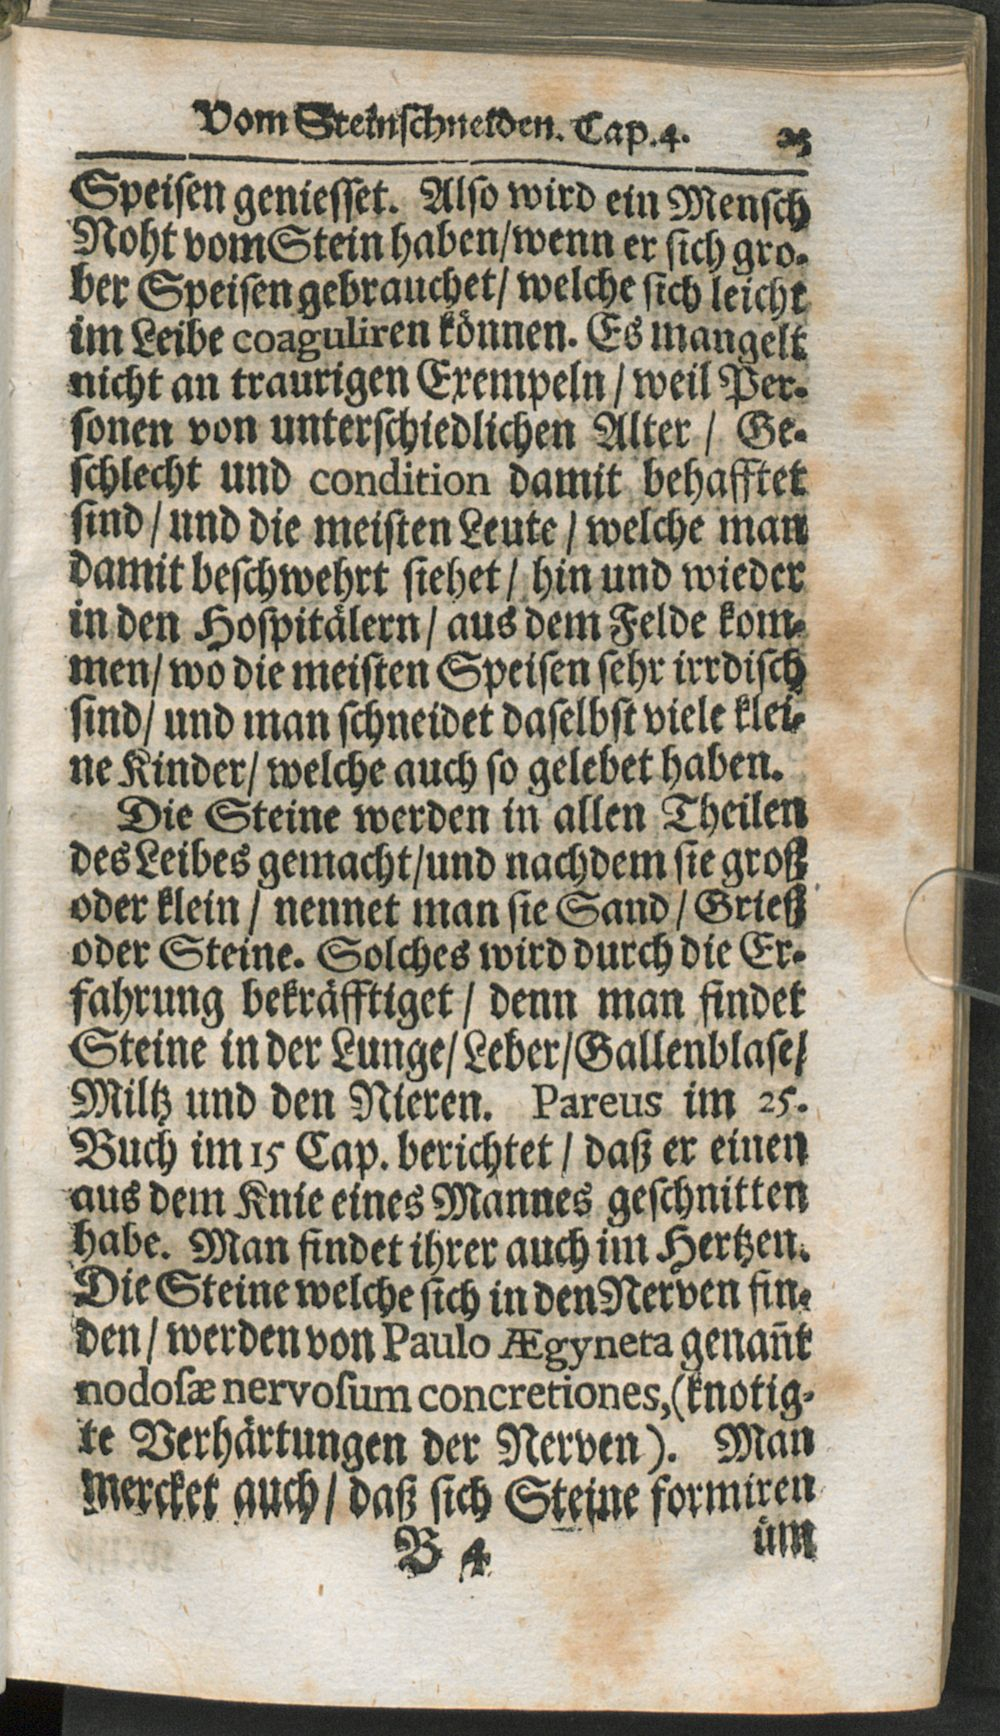 Vom Steinschneiden. Cap. 4. 23
Speisen geniesset. Also wird ein Mensch
Noht vom Stein haben/wenn er sich gro-
ber Speisen gebrauchet/ welche sich leicht
im Leibe coaguliren können. Es mangelt
nicht an traurigen Exempeln / weil Per-
sonen von unterschiedlichen Alter / Ge-
schlecht und condition damit behafftet
sind / und die meisten Leute / welche man
damit beschwehrt siehet / hin und wieder
in den Hospitälern / aus dem Felde kom-
men/ wo die meisten Speisen sehr irrdisch
sind/ und man schneidet daselbst viele klei-
ne Kinder/ welche auch so gelebet haben.
Die Steine werden in allen Theilen
des Leibes gemacht/und nachdem sie groß
oder klein / nennet man sie Sand / Grieß
oder Steine. Solches wird durch die Er-
fahrung bekräfftiget / denn man findet
Steine in der Lunge/ Leber/Gallenblase/
Miltz und den Nieren. Pareus im 25.
Buch im 15 Cap. berichtet / daß er einen
aus dem Knie eines Mannes geschnitten
habe. Man findet ihrer auch im Hertzen.
Die Steine welche sich in den Nerven fin-
den / werden von Paulo Ægyneta genañt
nodosæ nervosum concretiones, (knotig-
te Verhärtungen der Nerven). Man
mercket auch / daß sich Steine formiren
B 4 üm